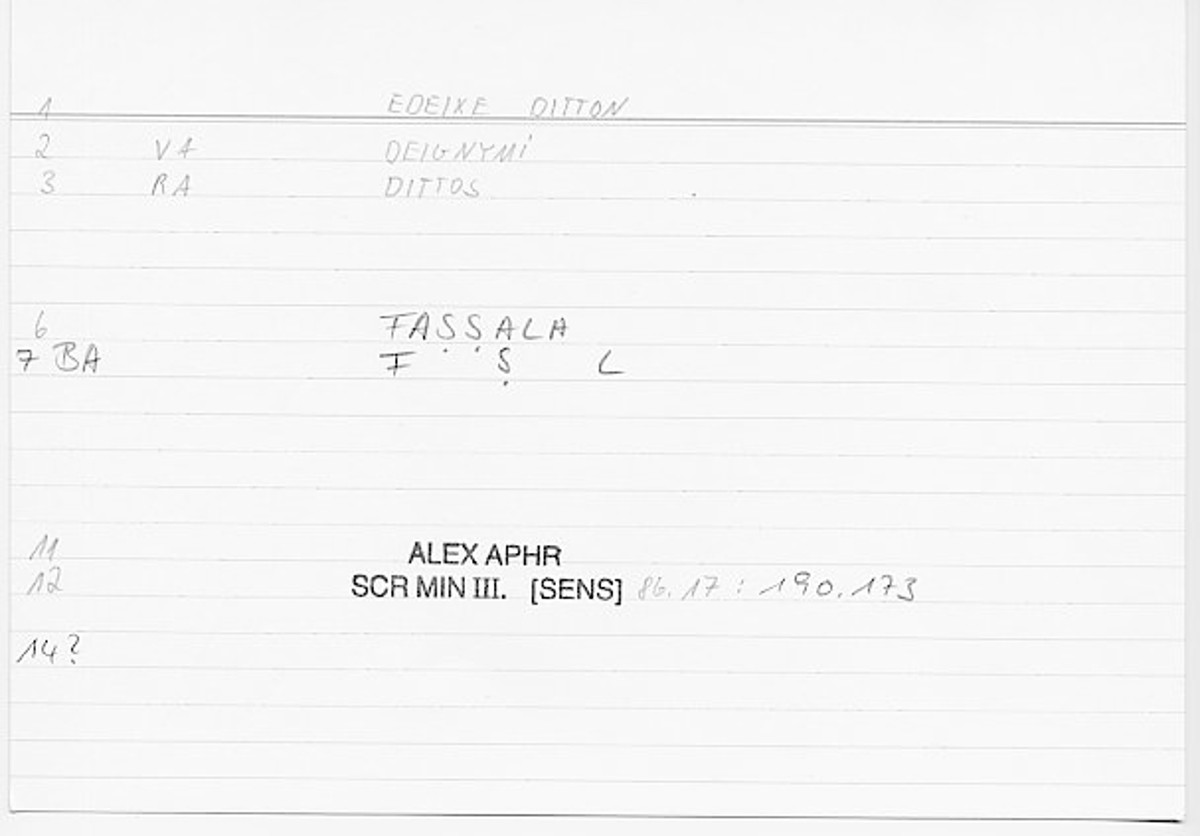 1 EDEIXE DITTON
2 VA DEIGNYMI
3 RA DITTOS
6 FAṢṢALA
7 BA F Ṣ L
11 ALEX APHR
12 SCR MIN III. [SENS] 86.17 : 190.173
14?